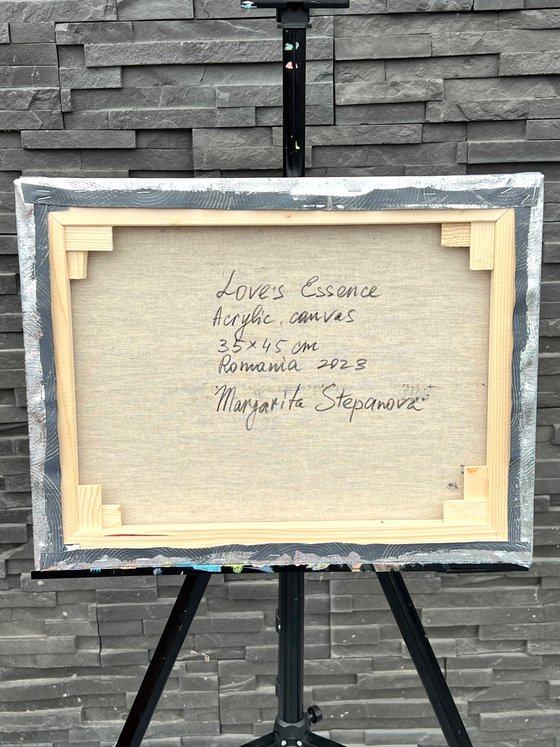 Love's Essence
Acrylic, canvas
35×45 cm
Romania 2023
Margarita Stepanova